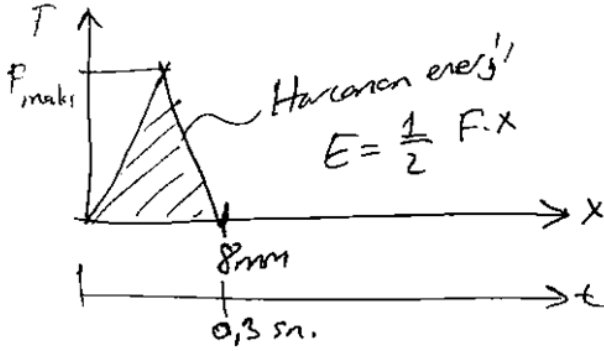 F
Fmaks
Harcanan enerji
E = 1/2 F.x
x
8mm
t
0,3 sn.